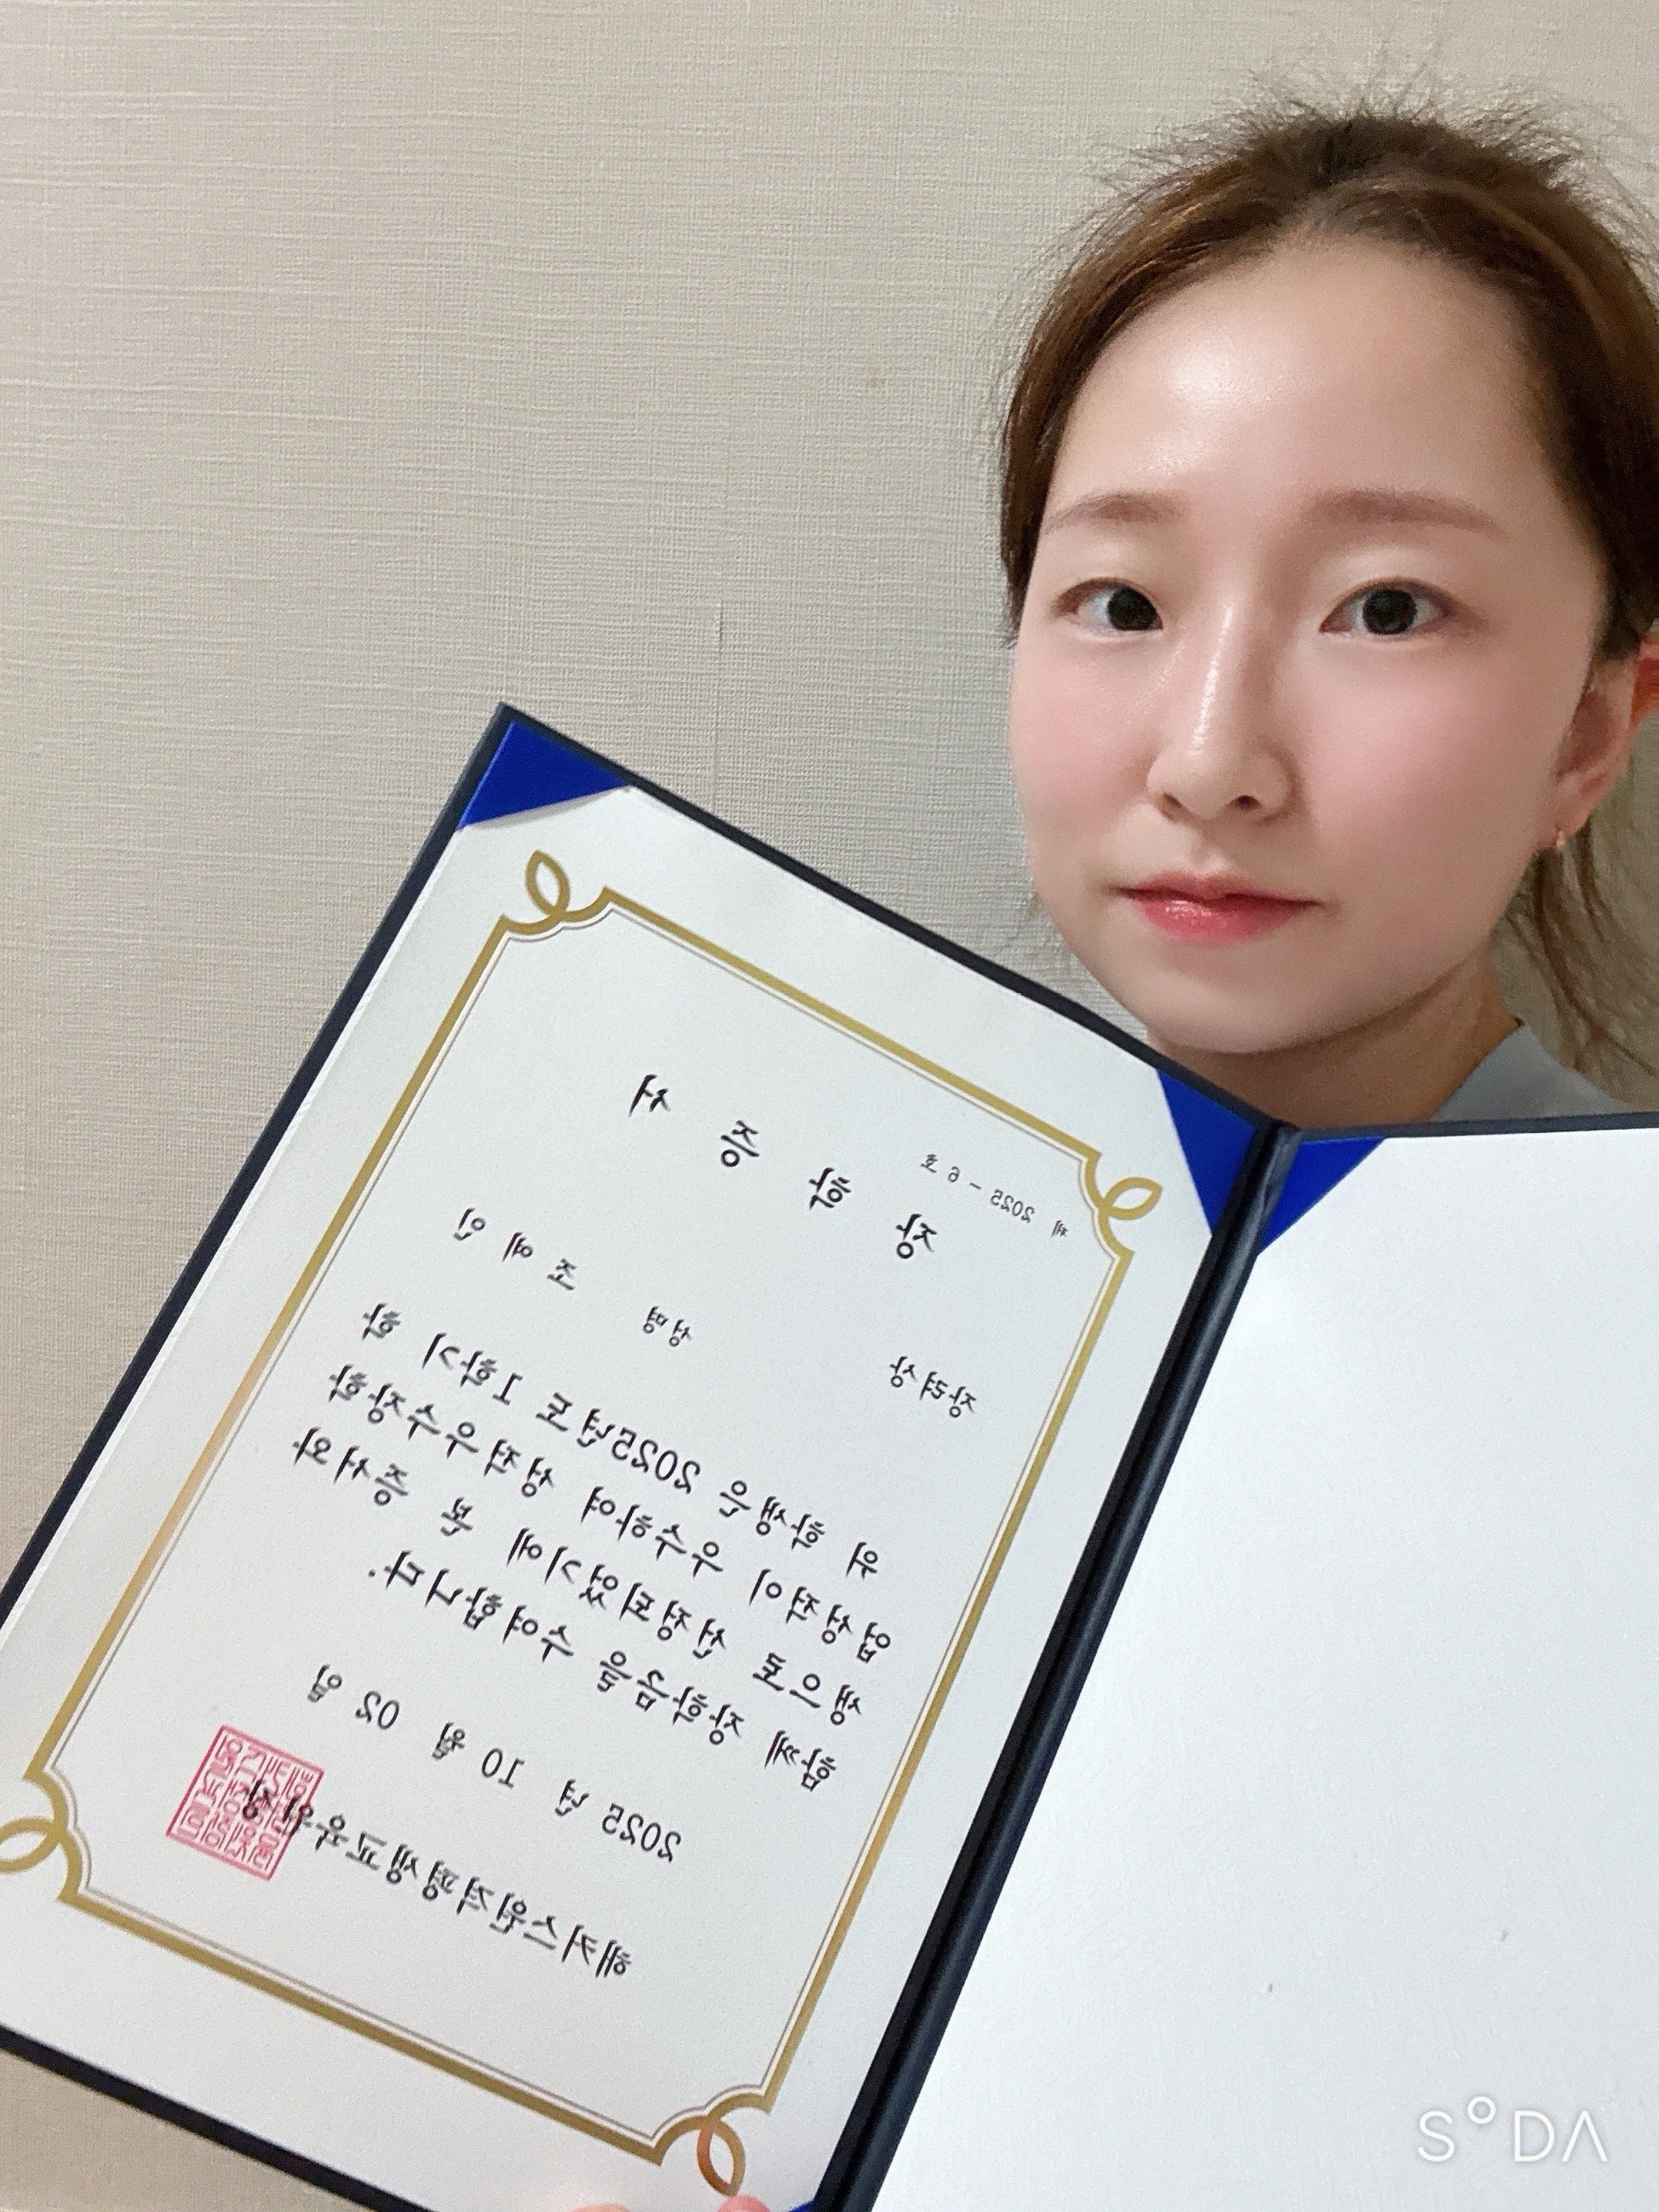 제 2025 - 6 호
장 학 증 서
장려상
성명 조 예 인
위 학생은 2025년도 1학기 학
업성적이 우수하여 성적우수장학
생으로 선정되었기에 본 증서와
함께 장학금을 수여합니다.
2025 년 10 월 02 일
해커스원격평생교육원장
SODA